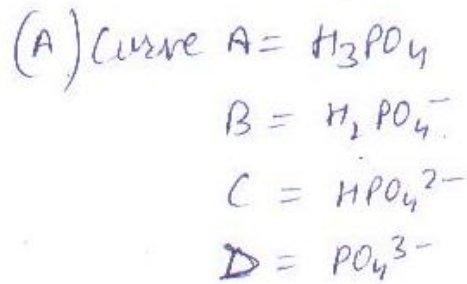 (A) Curve A = H₃PO₄
B = H₂PO₄⁻.
C = HPO₄²⁻
D = PO₄³⁻